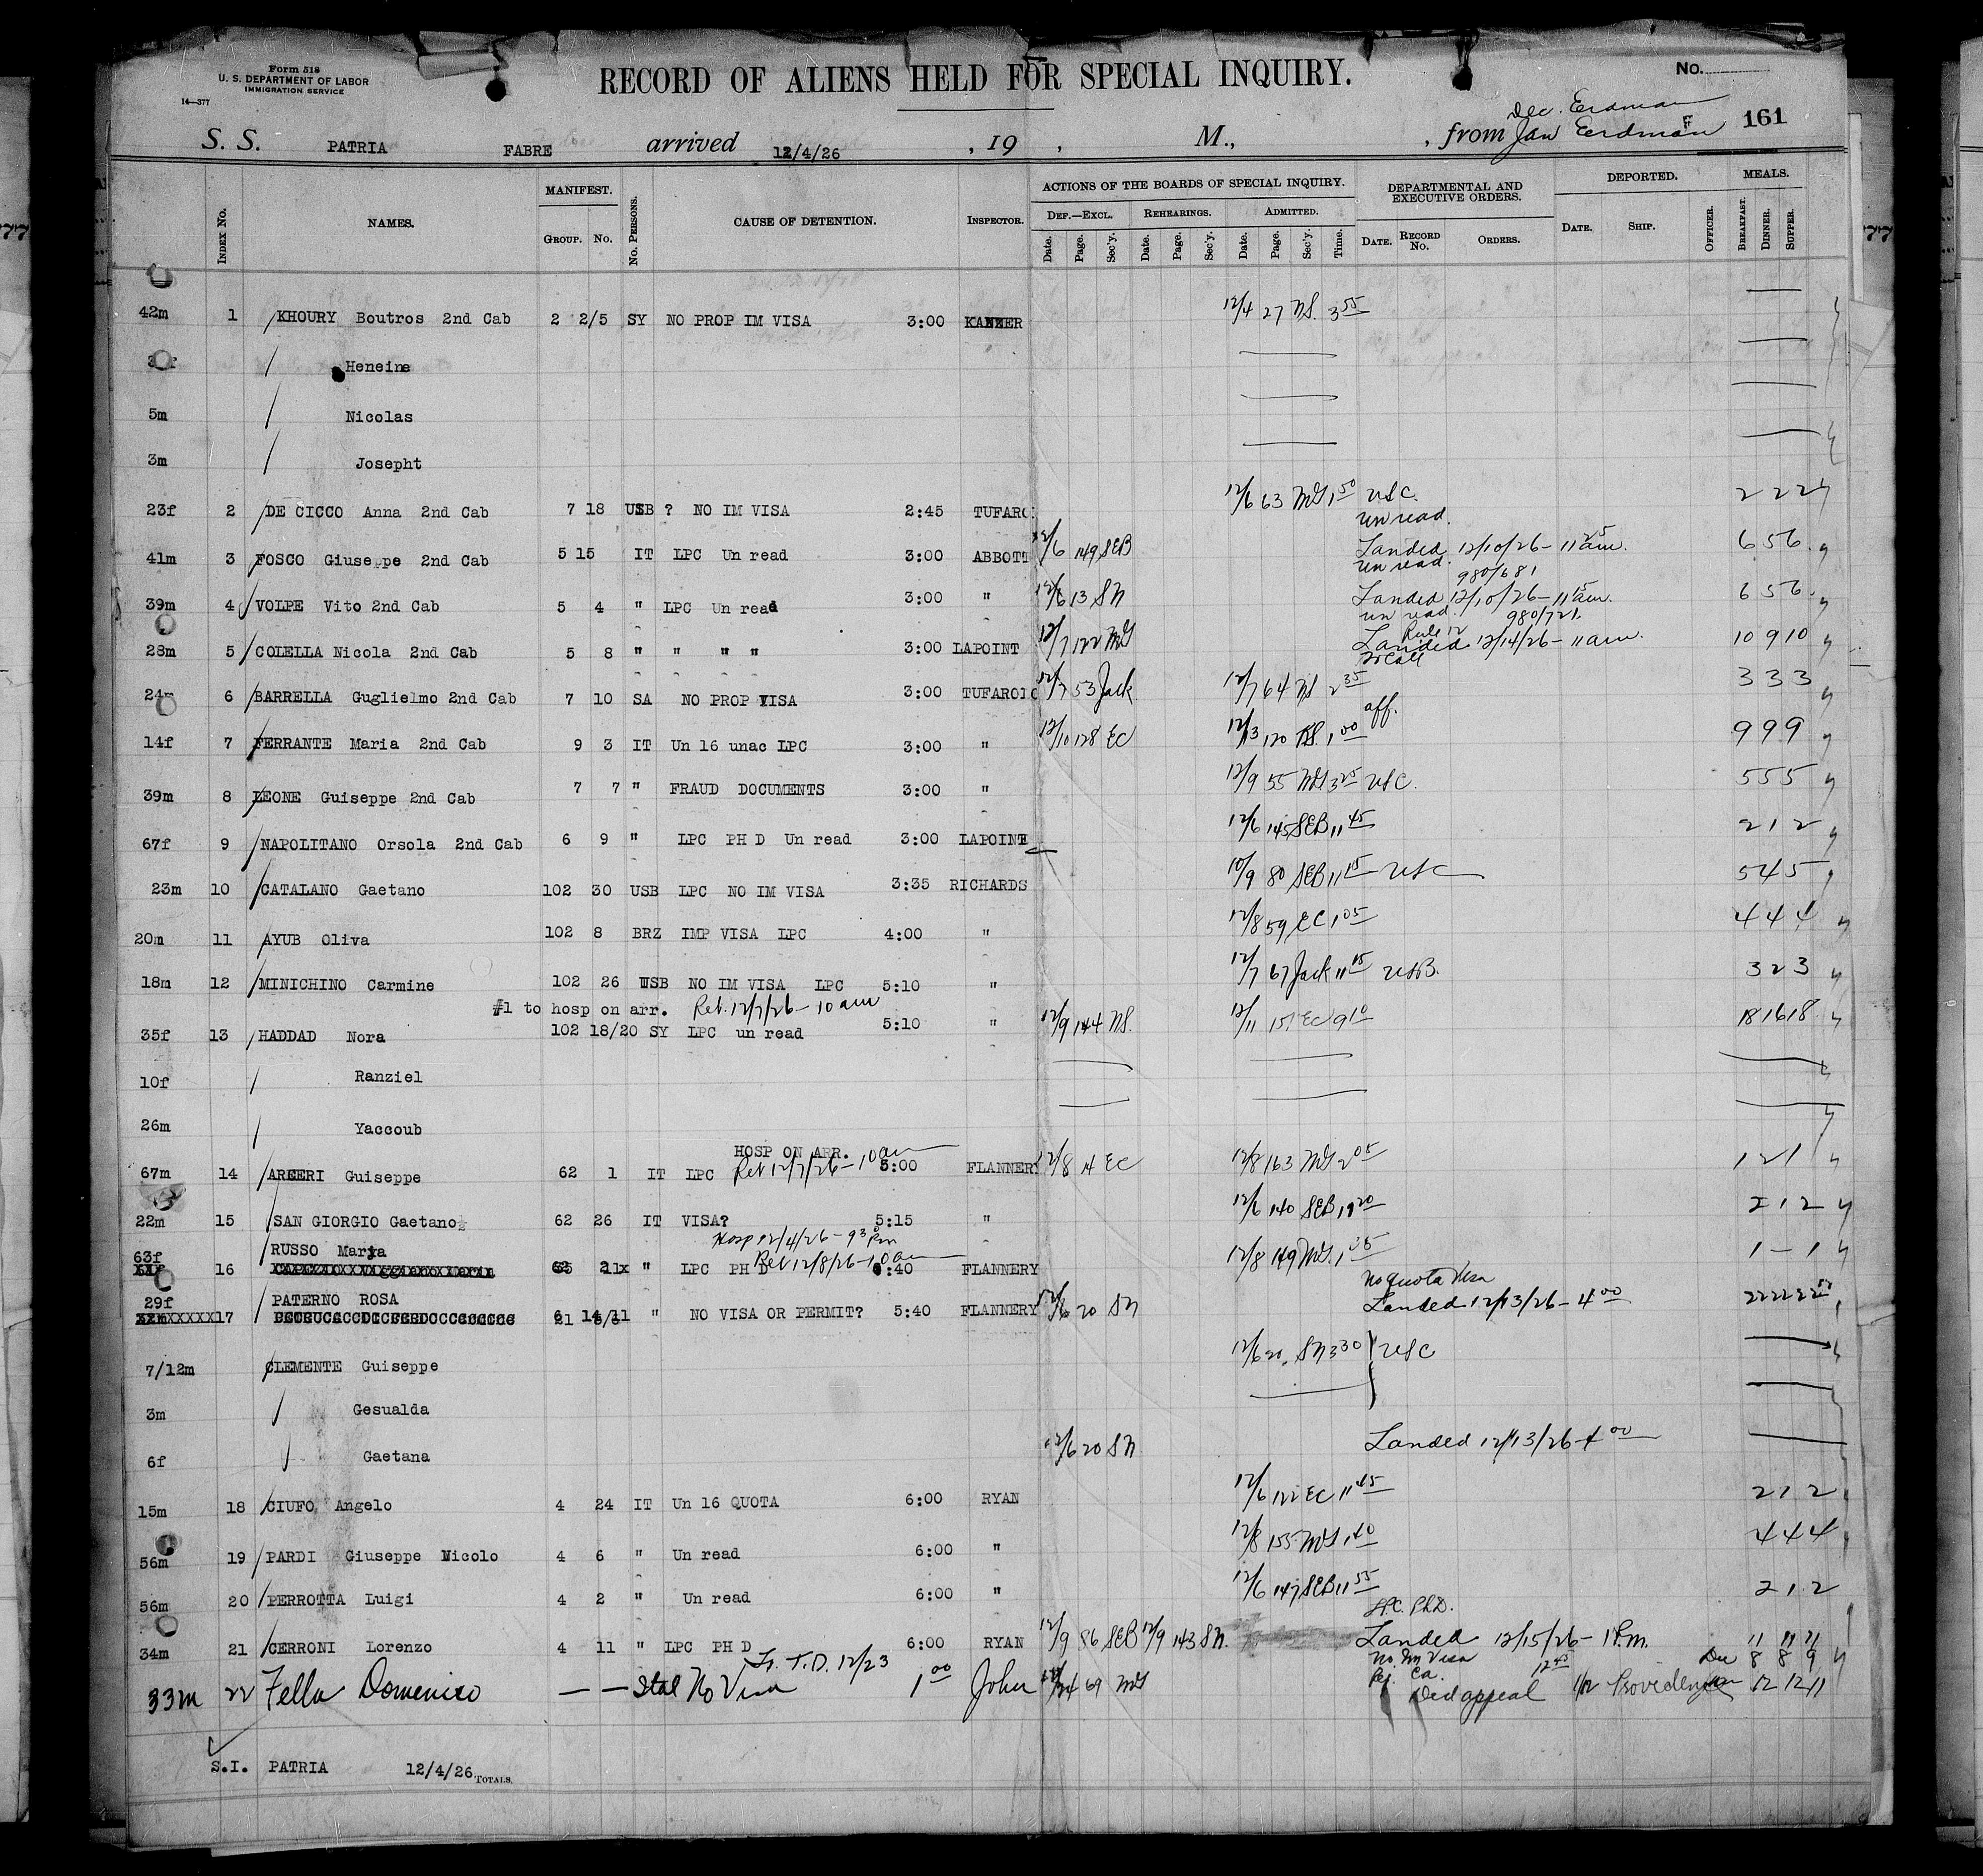 Form 518
U. S. DEPARTMENT OF LABOR
IMMIGRATION SERVICE
14—377
RECORD OF ALIENS HELD FOR SPECIAL INQUIRY.
No.
Dec. Erdman
161
S. S. PATRIA FABRE arrived 12/4/26 , 19 , M., , from Jan Erdman
MANIFEST. ACTIONS OF THE BOARDS OF SPECIAL INQUIRY. DEPARTMENTAL AND EXECUTIVE ORDERS. DEPORTED. MEALS.
Index No. NAMES. Group. No. No. Persons. CAUSE OF DETENTION. Inspector. Def.—Excl. Rehearings. Admitted.
Date. Page. Sec'y. Date. Page. Sec'y. Date. Page. Sec'y. Time. Date. Record No. Orders. Date. Ship. Officer. Breakfast. Dinner. Supper.
42m 1 KHOURY Boutros 2nd Cab 2 2/5 SY NO PROP IM VISA 3:00 12/4 27 NS. 3 55
Heneine
5m Nicolas
3m Josepht
23f 2 DE CICCO Anna 2nd Cab 7 18 USB ? NO IM VISA 2:45 TUFARO 12/6 63 MG 1 50 USC. 2 2 2
un read.
41m 3 FOSCO Giuseppe 2nd Cab 5 15 IT LPC Un read 3:00 ABBOTT 12/6 149 SEB Landed 12/10/26 - 11 25 am. 6 5 6
un read. 980/681
39m 4 VOLPE Vito 2nd Cab 5 4 " LPC Un read 3:00 " 12/6 13 SN Landed 12/10/26 - 11 15 am. 6 5 6
un read. 980/721
Rule 12
28m 5 COLELLA Nicola 2nd Cab 5 8 " " " " 3:00 LAPOINT 12/7 122 MG Landed 12/14/26 - 11 am. 10 9 10
24m 6 BARRELLA Guglielmo 2nd Cab 7 10 SA NO PROP VISA 3:00 TUFAROLO 12/7 53 Jack 12/7 64 NS 2 35 3 3 3
aff.
14f 7 FERRANTE Maria 2nd Cab 9 3 IT Un 16 unac LPC 3:00 " 12/10 128 EC 12/13 120 1 00 9 9 9
39m 8 LEONE Guiseppe 2nd Cab 7 7 " FRAUD DOCUMENTS 3:00 " 12/9 55 MG 3 25 USC. 5 5 5
67f 9 NAPOLITANO Orsola 2nd Cab 6 9 " LPC PH D Un read 3:00 LAPOINT 12/6 145 SEB 11 45 2 1 2
23m 10 CATALANO Gaetano 102 30 USB LPC NO IM VISA 3:35 RICHARDS 10/9 80 SEB 11 15 USC 5 4 5
20m 11 AYUB Oliva 102 8 BRZ IMP VISA LPC 4:00 " 12/8 59 EC 1 05 4 4 4
18m 12 MINICHINO Carmine 102 26 USB NO IM VISA LPC 5:10 " 12/7 67 Jack 11 15 USB. 3 2 3
#1 to hosp on arr. Ret. 12/7/26 - 10 am
35f 13 HADDAD Nora 102 18/20 SY LPC un read 5:10 " 12/9 144 NS. 12/11 151 EC 9 10 18 16 18
10f Ranziel
26m Yaccoub
HOSP ON ARR.
Ret 12/7/26 - 10 am
67m 14 ARGERI Guiseppe 62 1 IT LPC 5:00 FLANNERY 12/8 14 EC 12/8 163 MG 2 05 1 2 1
22m 15 SAN GIORGIO Gaetano 62 26 IT VISA? 5:15 " 12/6 140 SEB 11 20 2 1 2
Hosp 12/4/26 - 9 30 pm
63f RUSSO Maria
16 " LPC PH D Ret 12/8/26 - 10 am :40 FLANNERY 12/8 149 MG. 1 35 1 - 1
No Quota Visa
29f PATERNO ROSA
17 " NO VISA OR PERMIT? 5:40 FLANNERY 12/6 20 SN Landed 12/13/26 - 4 00 22 22 22
7/12m CLEMENTE Guiseppe 12/6 20 SN 3 30 USC
3m Gesualda
6f Gaetana 12/6 20 SN Landed 12/13/26 - 4 00
15m 18 CIUFO Angelo 4 24 IT Un 16 QUOTA 6:00 RYAN 12/6 122 EC 11 45 2 1 2
56m 19 PARDI Giuseppe Nicolo 4 6 " Un read 6:00 " 12/8 155 MG 1 40 4 4 4
56m 20 PERROTTA Luigi 4 2 " Un read 6:00 " 12/6 147 SEB 11 55 2 1 2
LPC. PhD.
34m 21 CERRONI Lorenzo 4 11 " LPC PH D 6:00 RYAN 12/9 86 SEB 12/9 143 SN. Landed 12/15/26 - 1 P.m. 11 11 11
Fr. T.D. 12/23 No Im Visa 12 45 Dec 8 8 9
33m 22 Fella Domenico — — Ital No Visa 1 00 John 12/24 69 MG Ded appeal 1/12 Providence Jan 12 12 11
S.I. PATRIA 12/4/26 TOTALS.